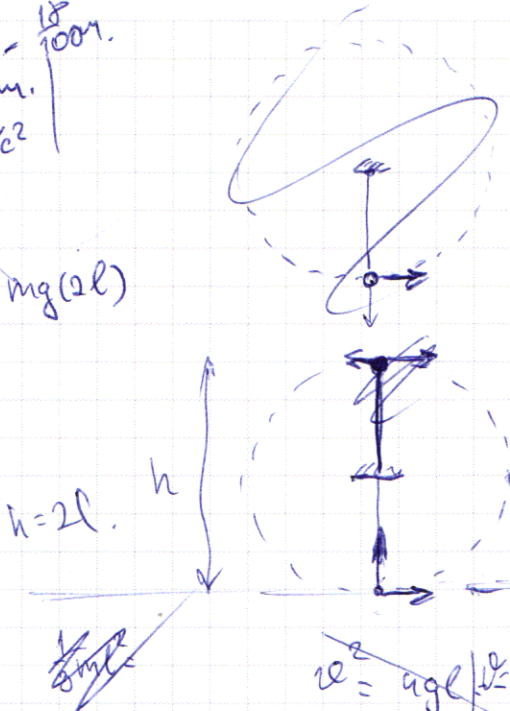 18
100м.
м.
/с²
mg(2l)
h
h=2l.
v² = 4gl | v=